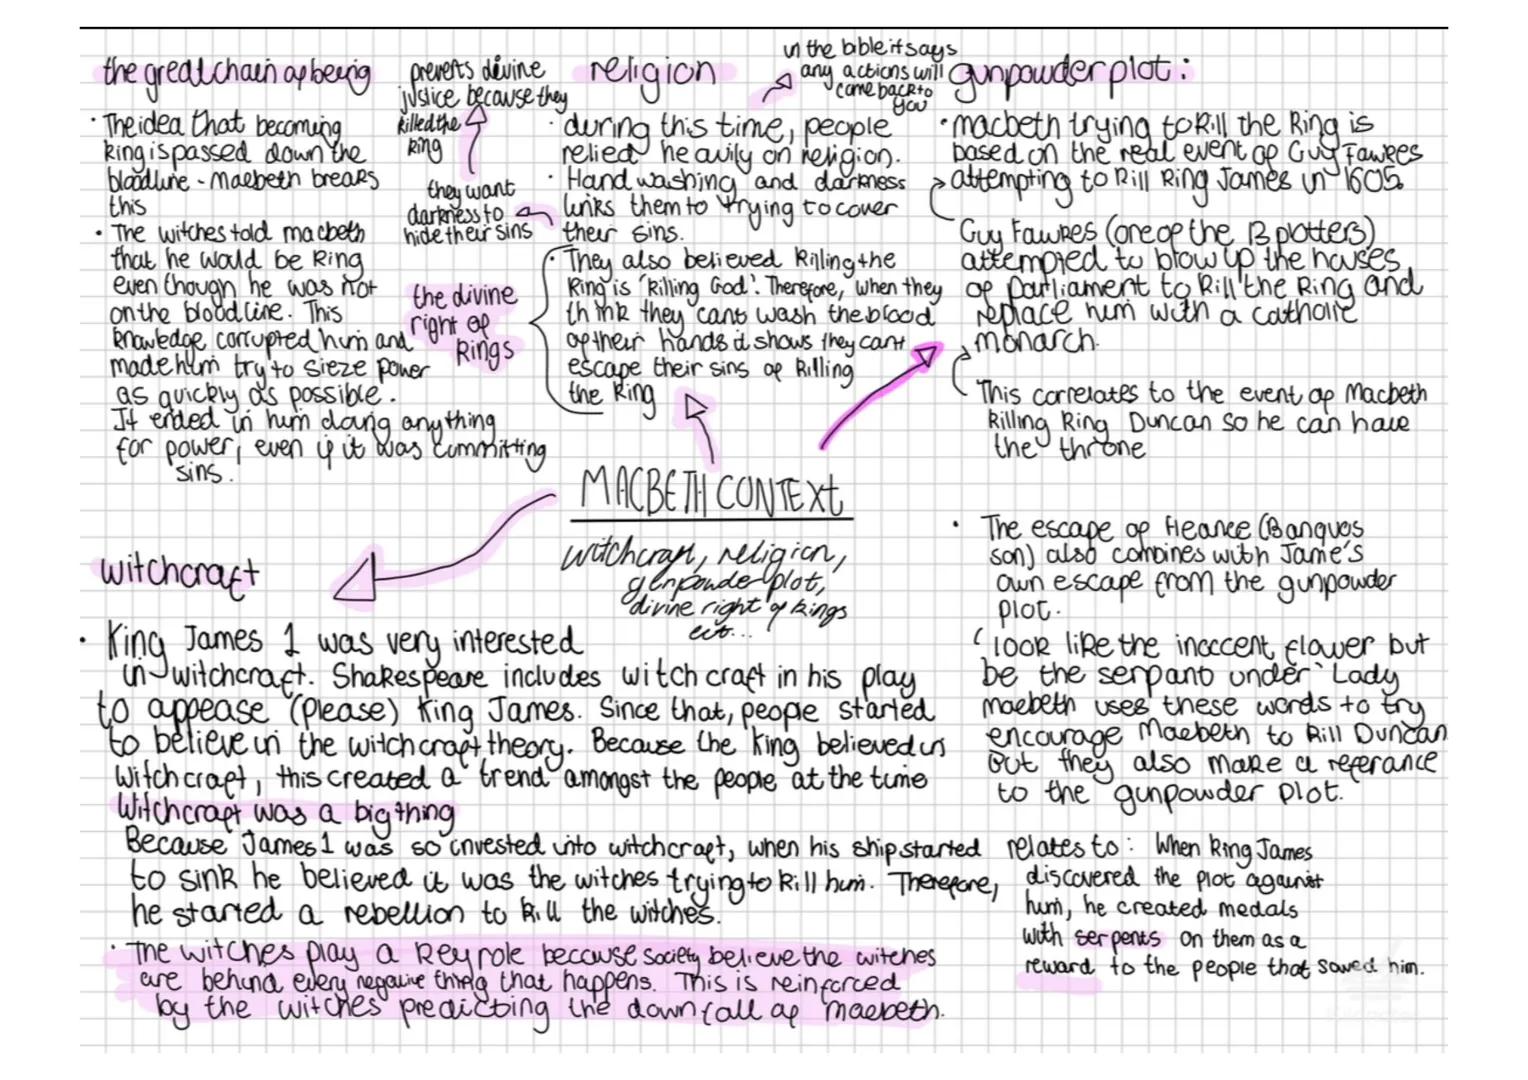 the great chain of being
• The idea that becoming
king is passed down the
bloodline - Macbeth breaks
this
• The witches told macbeth
that he would be King
even though he was not
on the bloodline. This
knowledge corrupted him and
made him try to sieze power
as quickly as possible.
It ended in him doing anything
for power, even if it was committing
sins.
prevents divine
justice because they
killed the
king
they want
darkness to
hide their sins
the divine
right of
Kings
religion
in the bible it says
any actions will
come back to
you
• during this time, people
relied heavily on religion.
• Hand washing and darkness
links them to trying to cover
their sins.
• They also believed killing the
King is 'killing God'. Therefore, when they
think they cant wash the blood
of their hands it shows they cant
escape their sins of killing
the king
gunpowder plot:
• macbeth trying to kill the King is
based on the real event of Guy Fawkes
attempting to kill King James in 1605.
Guy Fawkes (one of the 13 plotters)
attempted to blow up the houses
of parliament to kill the King and
replace him with a catholic
monarch.
This correlates to the event of Macbeth
killing King Duncan so he can have
the throne
MACBETH CONTEXT
witchcraft, religion,
gunpowder plot,
divine right of kings
ect...
• The escape of fleance (Banquos
son) also combines with Jame's
own escape from the gunpowder
plot.
'look like the inoccent flower but
be the serpant under' Lady
macbeth uses these words to try
encourage Macbeth to kill Duncan
but they also make a referance
to the gunpowder plot.
relates to: When King James
discovered the plot against
him, he created medals
with serpents on them as a
reward to the people that saved him.
witchcraft
• King James 1 was very interested
in witchcraft. Shakespeare includes witchcraft in his play
to appease (please) King James. Since that, people started
to believe in the witchcraft theory. Because the King believed in
witchcraft, this created a trend amongst the people at the time
Witchcraft was a big thing
Because James 1 was so invested into witchcraft, when his ship started
to sink he believed it was the witches trying to kill him. Therefore,
he started a rebellion to kill the witches.
• The witches play a key role because society believe the witches
are behind every negative thing that happens. This is reinforced
by the witches predicting the downfall of macbeth.